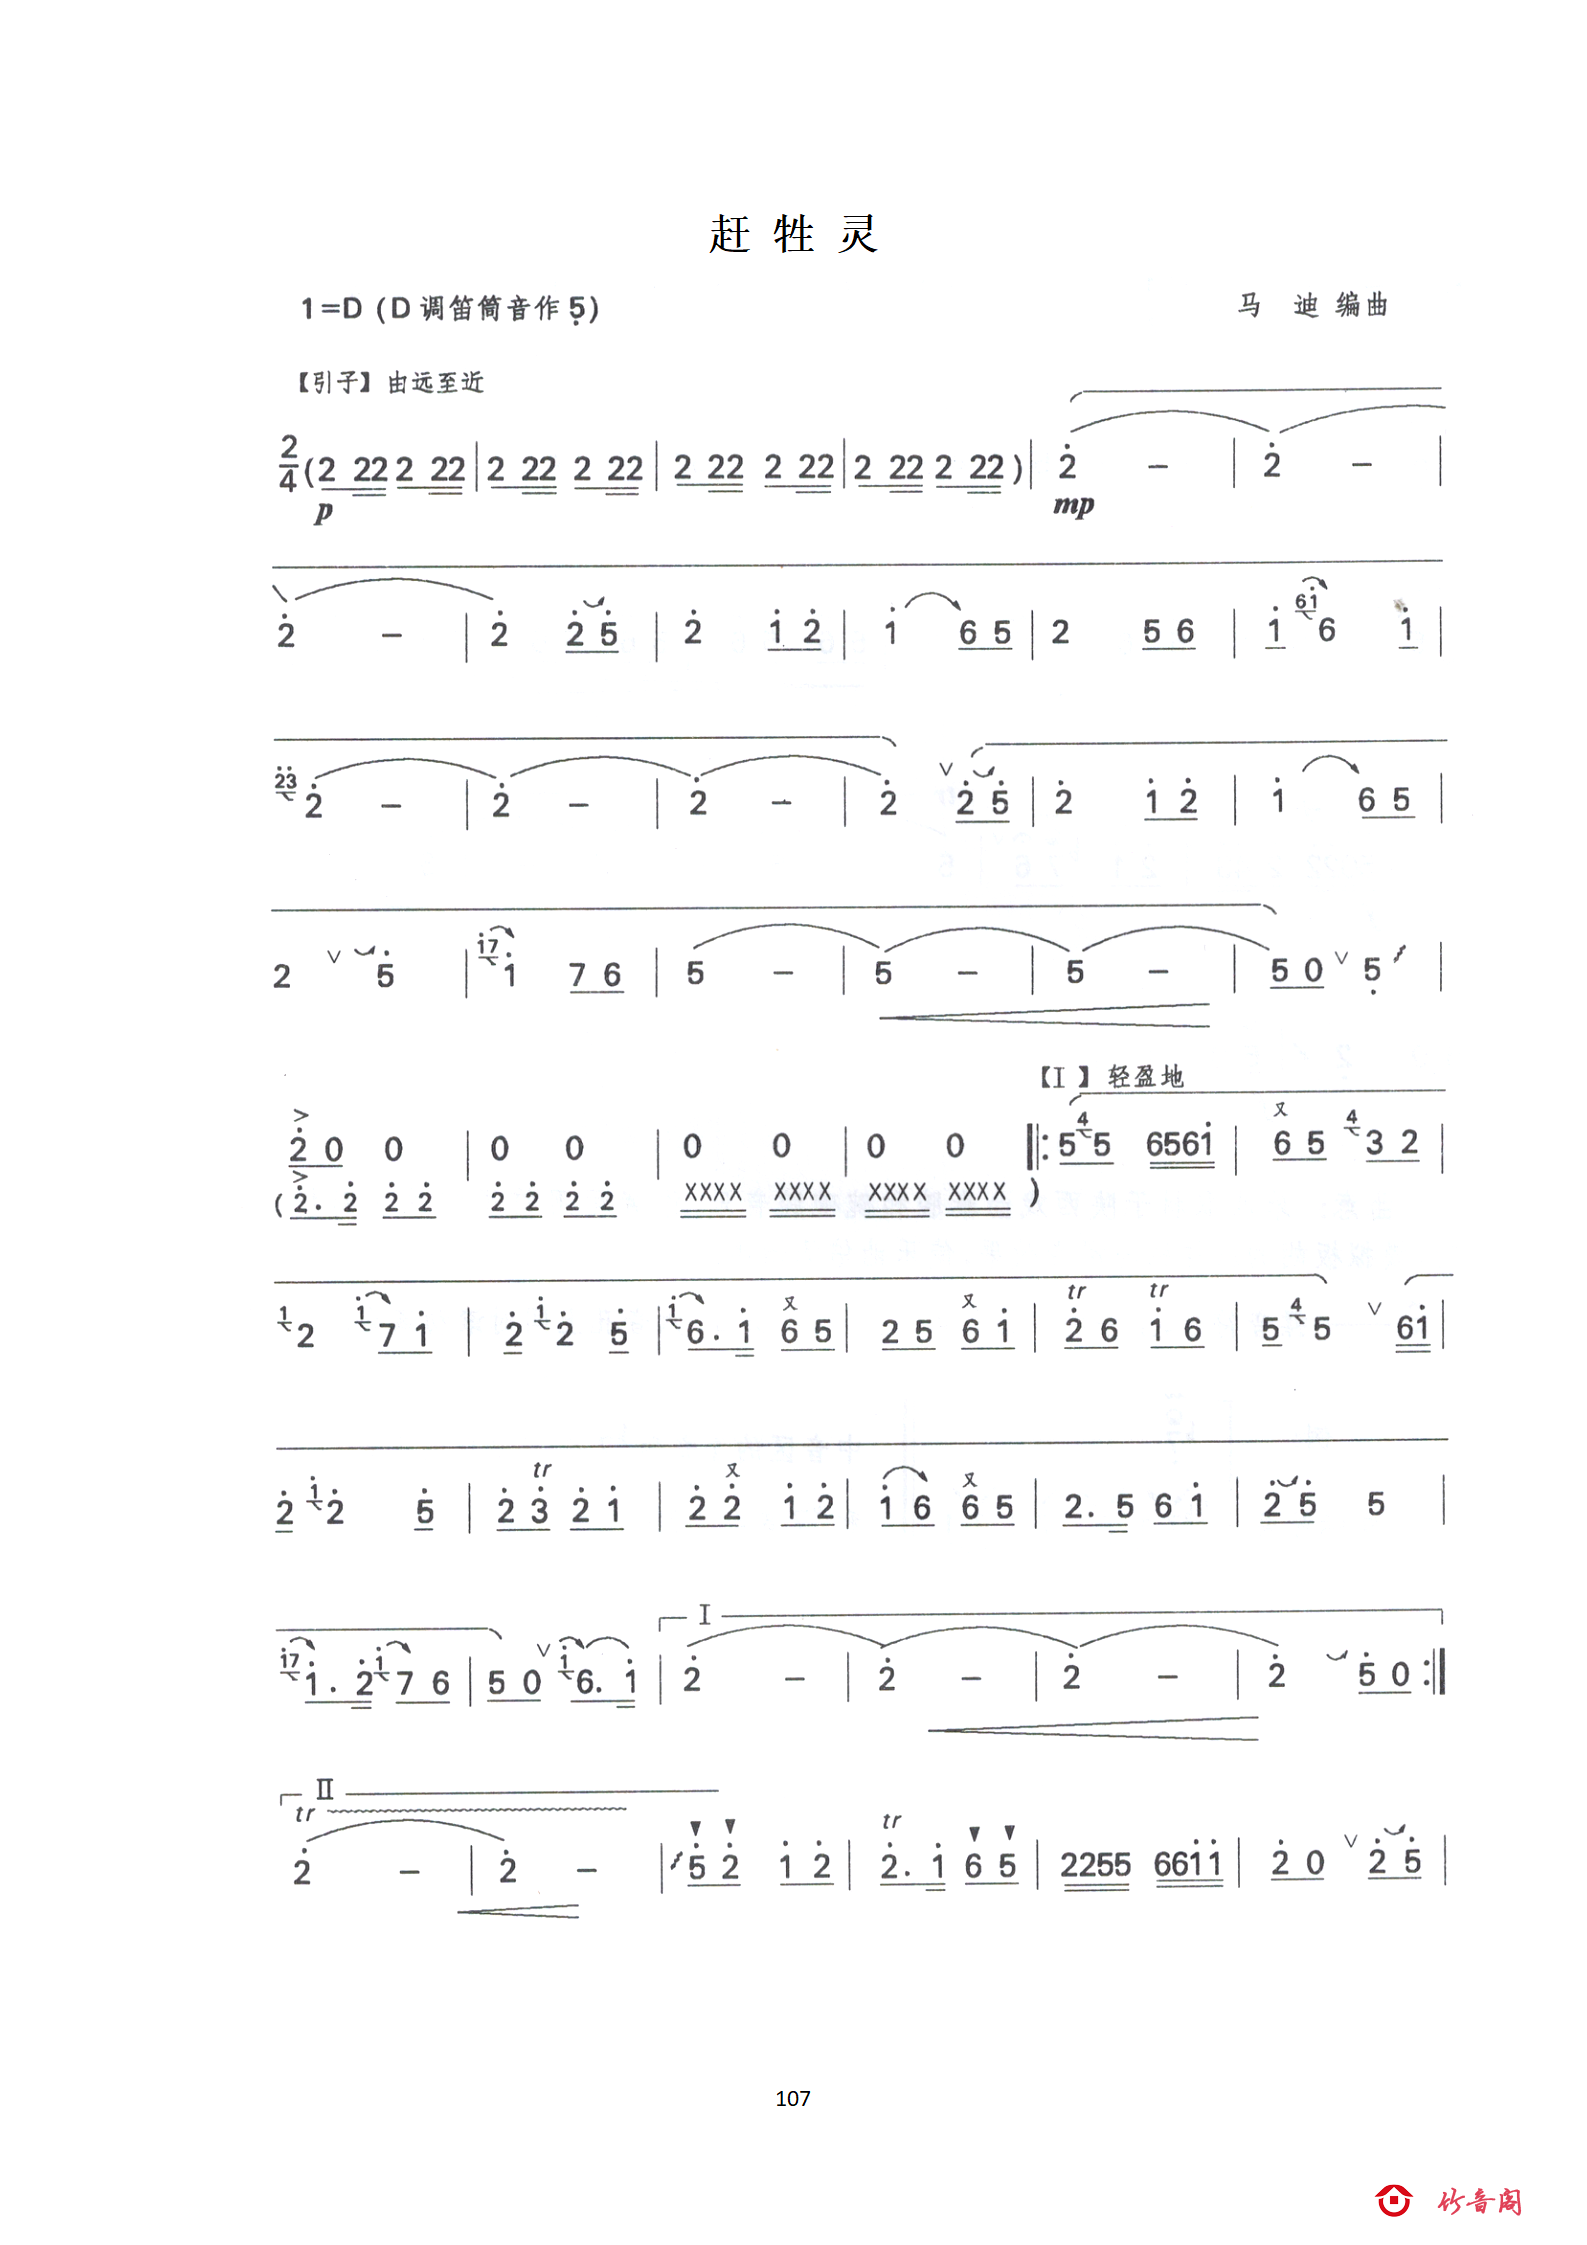 赶 牲 灵
1=D (D 调笛筒音作 5̣)
马 迪 编曲
【引子】 由远至近
2/4 (2 22 2 22 | 2 22 2 22 | 2 22 2 22 | 2 22 2 22 ) | 2̇ – | 2̇ – |
p mp
2̇ – | 2̇ 2̇ 5̇ | 2̇ 1̇ 2̇ | 1̇ 6 5 | 2 5 6 | 1̇ 61̇ 6 1̇ |
2̇3̇ 2̇ – | 2̇ – | 2̇ – | 2̇ ∨ 2̇ 5̇ | 2̇ 1̇ 2̇ | 1̇ 6 5 |
2 ∨ 5̇ | 1̇7 1̇ 7 6 | 5 – | 5 – | 5 – | 5 0 ∨ 5̣ |
【I 】 轻盈地
> 又
2̇ 0 0 | 0 0 | 0 0 | 0 0 ‖: 5 4 5 6561̇ | 6 5 4 3 2 |
>
( 2̇. 2̇ 2̇ 2̇ 2̇ 2̇ 2̇ 2̇ XXXX XXXX XXXX XXXX )
又 又 tr tr
1 2 1̇ 7 1̇ | 2̇ 1̇ 2̇ 5̇ | 1̇ 6. 1̇ 6 5 | 2 5 6 1̇ | 2̇ 6 1̇ 6 | 5 4 5 ∨ 61̇ |
tr 又 又
2̇ 1̇ 2̇ 5̇ | 2̇ 3̇ 2̇ 1̇ | 2̇ 2̇ 1̇ 2̇ | 1̇ 6 6 5 | 2. 5 6 1̇ | 2̇ 5̇ 5 |
I
1̇7 1̇. 2̇ 1̇ 7 6 | 5 0 ∨ 1̇ 6. 1̇ | 2̇ – | 2̇ – | 2̇ – | 2̇ 5̇ 0 :‖
II
tr ▼ ▼ tr ▼ ▼
2̇ – | 2̇ – | 5̇ 2̇ 1̇ 2̇ | 2̇. 1̇ 6 5 | 2255 661̇1̇ | 2̇ 0 ∨ 2̇ 5̇ |
107
竹音阁